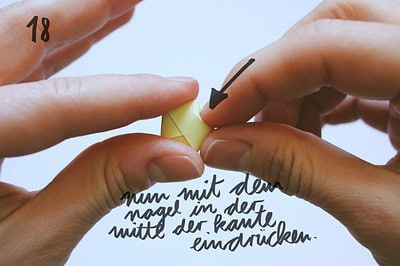 18
nun mit dem
nagel in der
mitte der kante
eindrücken.